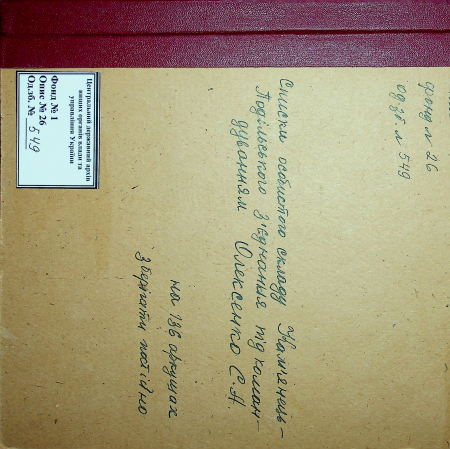 фонд № 26
од.зб. № 549
Списки особистого складу Кам'янець-
Подільського з'єднання під коман-
дуванням Олексенко С.А.
на 136 аркушах
Зберігати постійно
Центральний державний архів
вищих органів влади та
управління України
Фонд № 1
Опис № 26
Од.зб. № 549